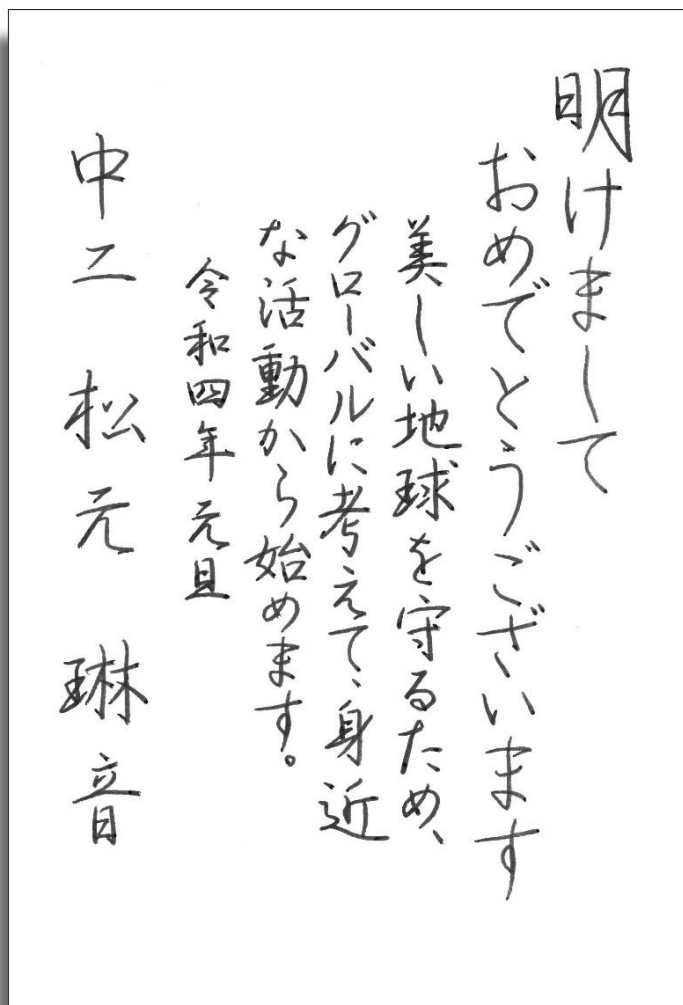 明けまして
おめでとうございます
美しい地球を守るため、
グローバルに考えて、身近
な活動から始めます。
令和四年元旦
中二 松元 琳音